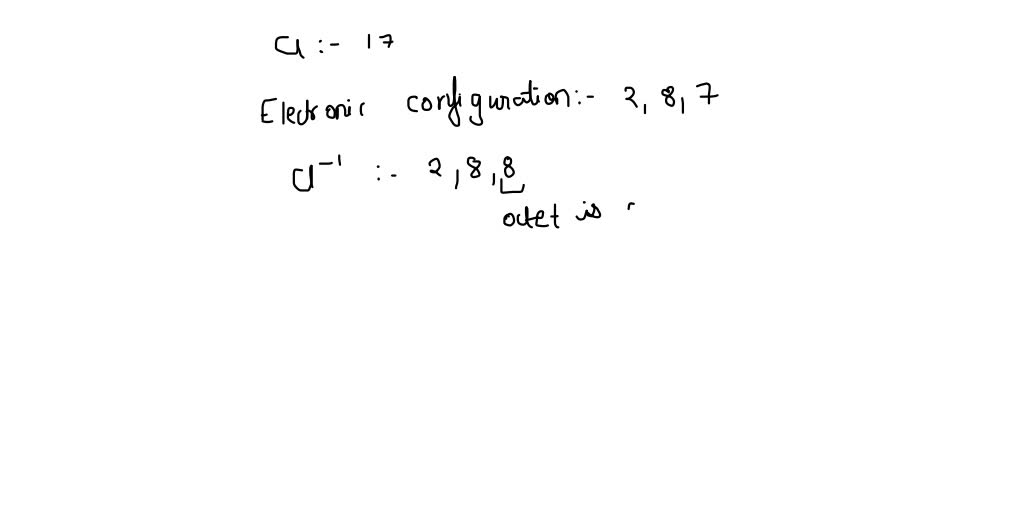 Cl :- 17
Electronic configuration :- 2, 8, 7
Cl⁻¹ :- 2, 8, 8
octet is